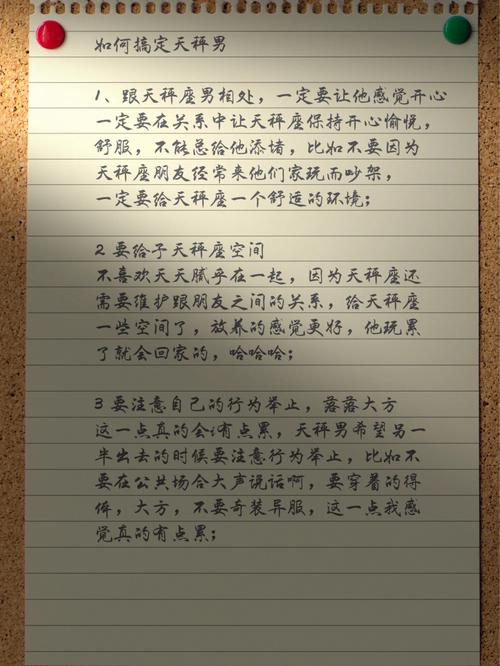 如何搞定天秤男
1、跟天秤座男相处，一定要让他感觉开心
一定要在关系中让天秤座保持开心愉悦，
舒服，不能总给他添堵，比如不要因为
天秤座朋友经常来他们家玩而吵架，
一定要给天秤座一个舒适的环境；
2 要给予天秤座空间
不喜欢天天腻乎在一起，因为天秤座还
需要维护跟朋友之间的关系，给天秤座
一些空间了，放养的感觉更好，他玩累
了就会回家的，哈哈哈；
3 要注意自己的行为举止，落落大方
这一点真的会有点累，天秤男希望另一
半出去的时候要注意行为举止，比如不
要在公共场合大声说话啊，要穿着的得
体，大方，不要奇装异服，这一点我感
觉真的有点累；